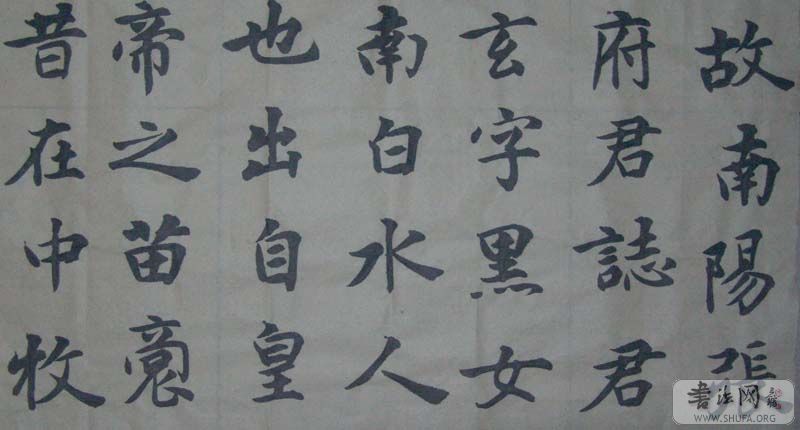 故南陽張
府君誌君
玄字黑女
南白水人
也出自皇
帝之苗裔
昔在中牧
书法网
WWW.SHUFA.ORG